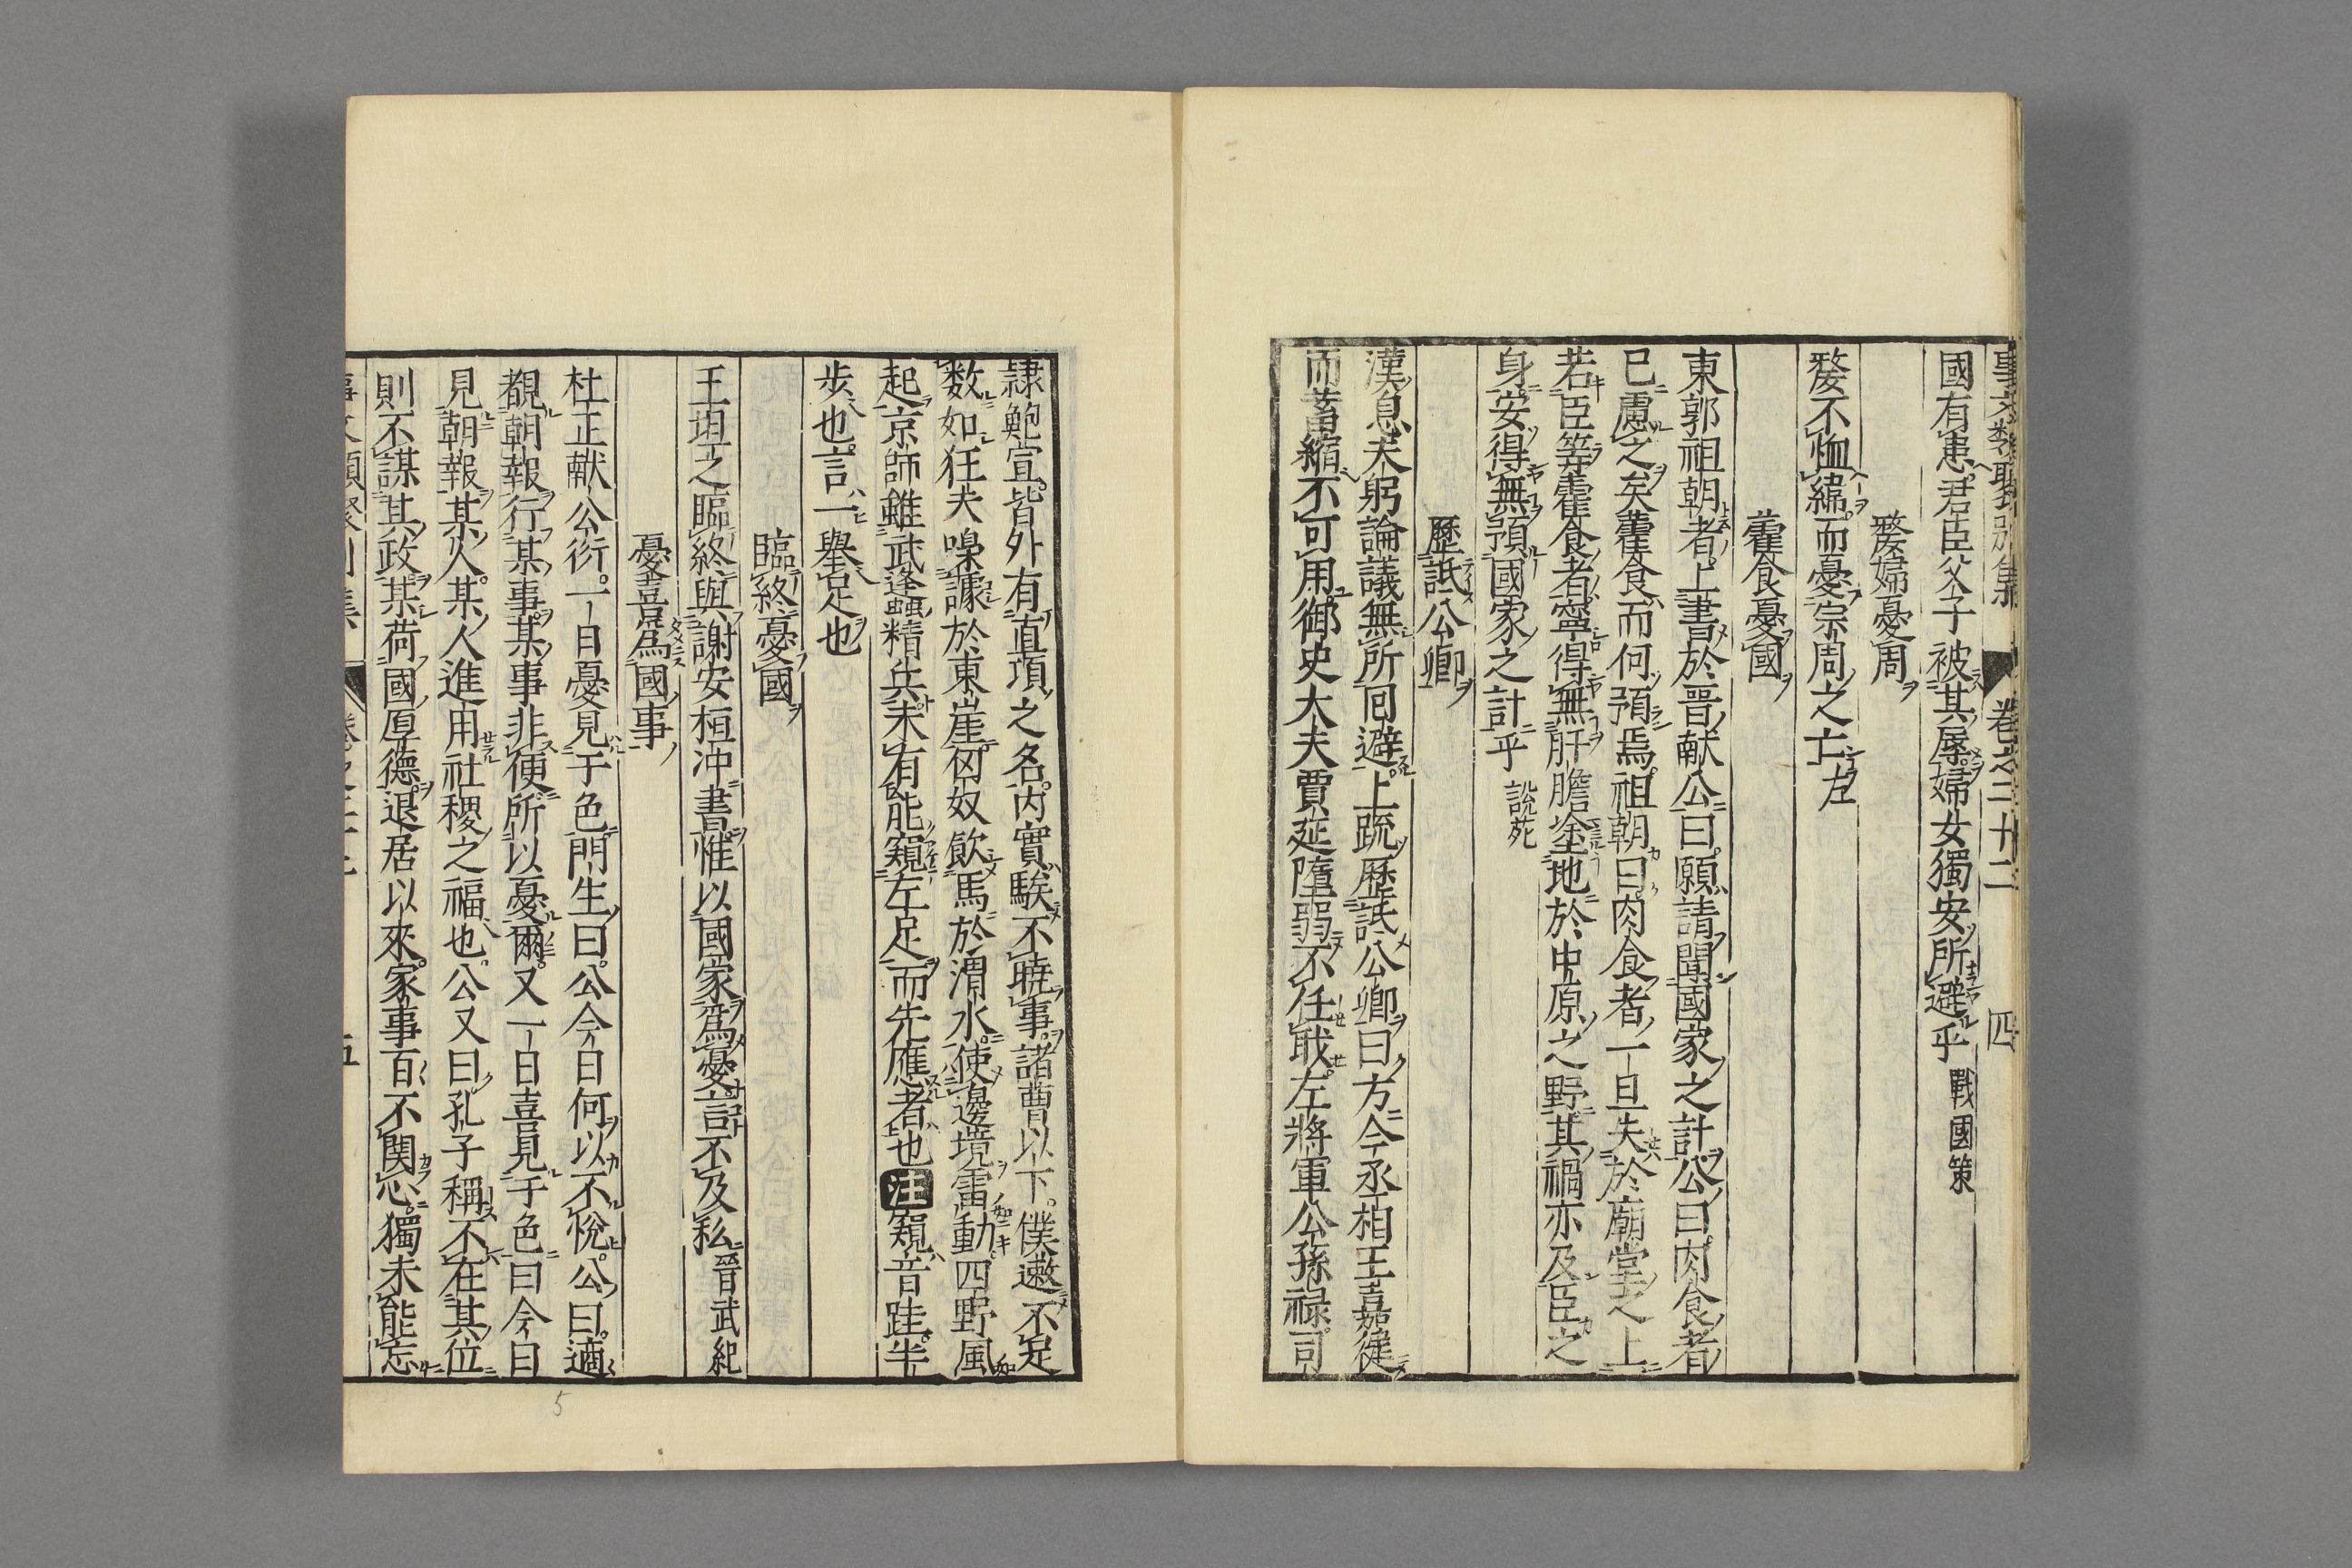 事文類聚別集 卷之二十二 四
國有患君臣父子被其辱婦女獨安所避乎 戰國策
嫠婦憂周
嫠不恤緯而憂宗周之亡左
藿食憂國
東郭祖朝者上書於晋献公曰願請聞國家之計公曰肉食者
已慮之矣藿食而何預焉祖朝曰肉食者一旦失於廟堂之上
若臣等藿食者寧得無肝膽塗地於中原之野其禍亦及臣之
身安得無預國家之計乎 說苑
歷詆公卿
漢息夫躬論議無所回避上疏歷詆公卿曰方今丞相王嘉健
而蓄縮不可用御史大夫賈延墮弱不任职左將軍公孫禄司
隷鮑宣皆外有直項之名内實騃不曉事諸曹以下僕遬不足
数如狂夫嘄謼於東崖匈奴飲馬於渭水使邊境雷動四野風
起京師雖武蠭精兵未有能窺左足而先應者也注窺音跬半
歩也言一舉足也
臨終憂國
王坦之臨終與謝安桓沖書惟以國家為憂言不及私 晉武紀
憂喜為國事
杜正献公衍一日憂見于色門生曰公今日何以不悅公曰適
覩朝報行某事某事非便所以憂爾又一日喜見于色曰今日
見朝報某人某人進用社稷之福也公又曰孔子稱不在其位
則不謀其政某荷國厚德退居以來家事百不関心獨未能忘
5